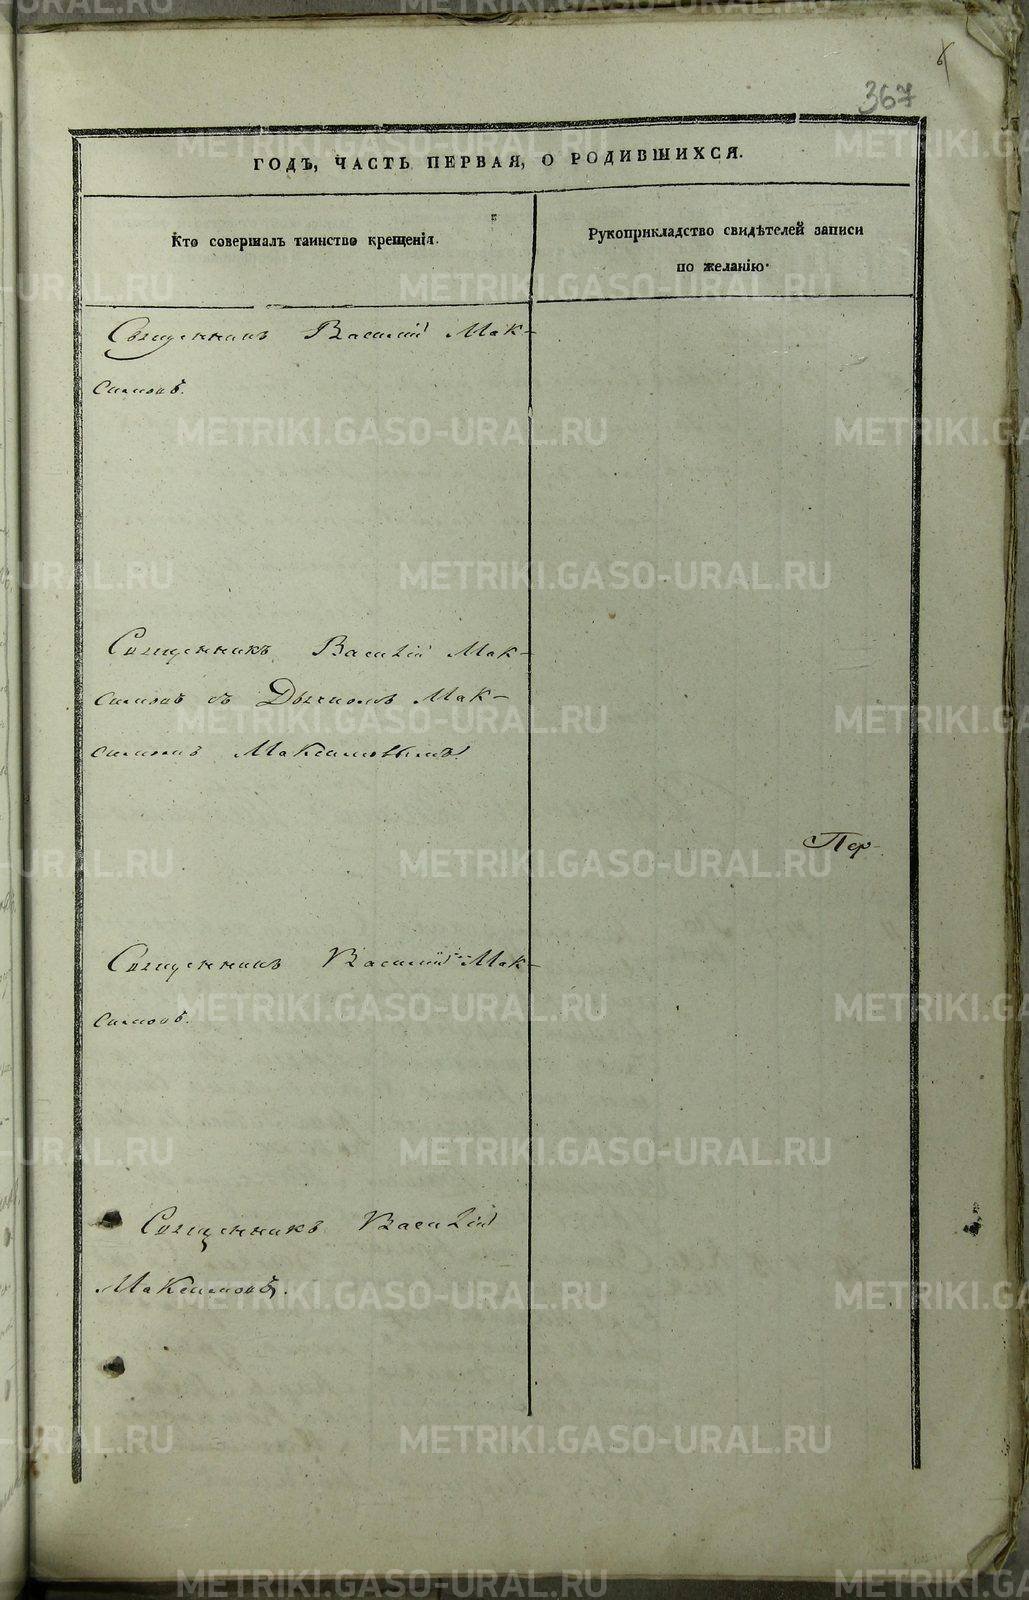 6
367
ГОДЪ, ЧАСТЬ ПЕРВАЯ, О РОДИВШИХСЯ.
Кто совершалъ таинство крещенія.
Рукоприкладство свидѣтелей записи
по желанію.
Священникъ Василій Мак-
симовъ.
Священникъ Василій Мак-
симовъ съ Дьячкомъ Мак-
симомъ Максимовымъ.
Пер-
Священникъ Василій Мак-
симовъ.
Священникъ Василій
Максимовъ.
METRIKI.GASO-URAL.RU